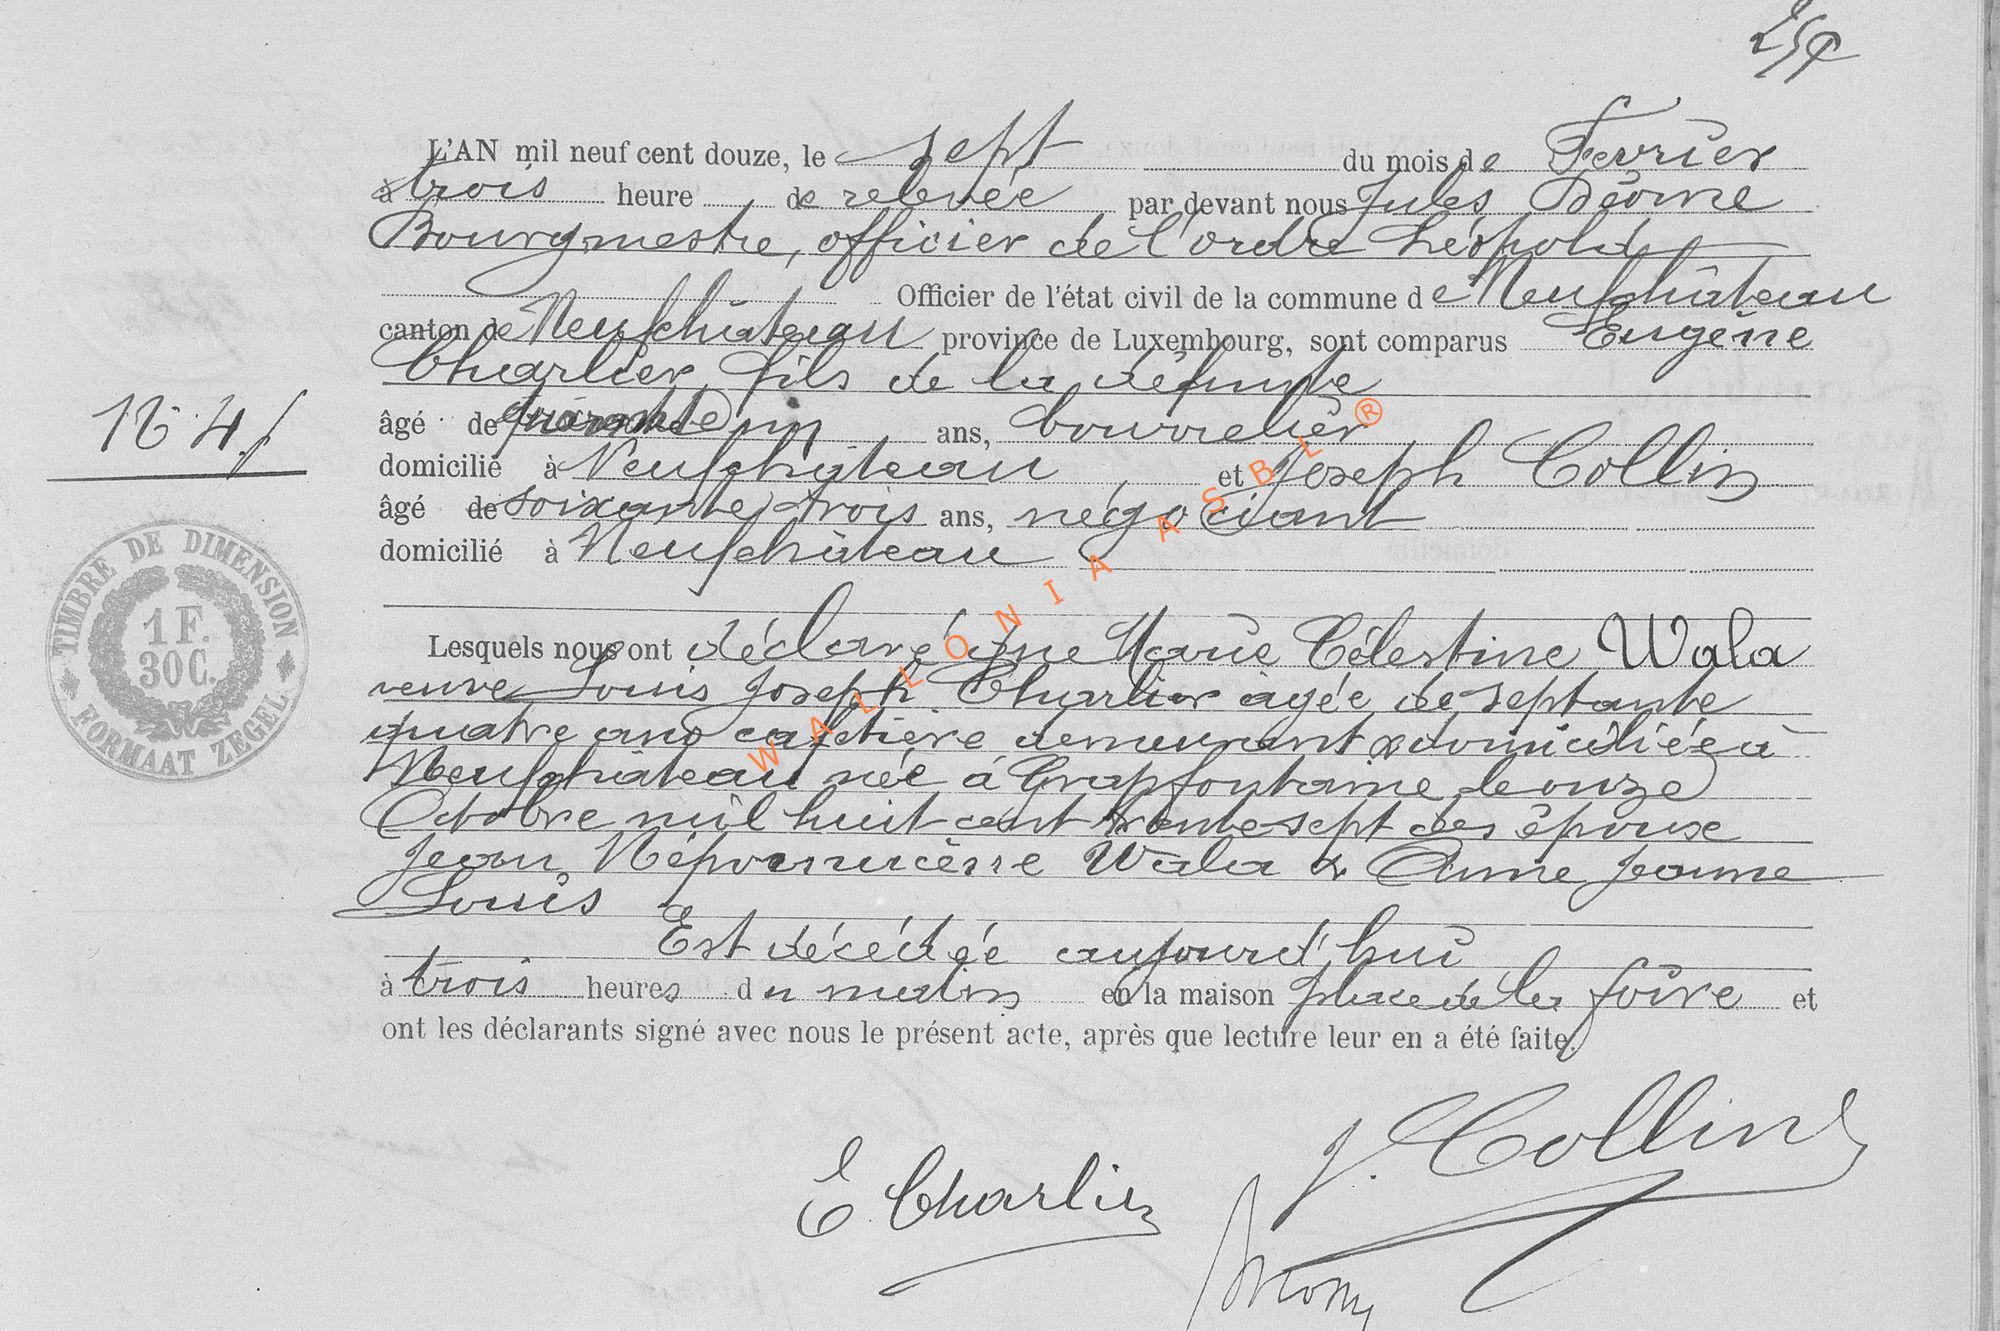 L'AN mil neuf cent douze, le sept du mois de Février
à trois heure de relevée par devant nous Jules
Bourgmestre, officier de l'ordre Léopold
Officier de l'état civil de la commune de Neufchâteau
canton de Neufchâteau province de Luxembourg, sont comparus Eugène
Charlier, fils de la défunte
âgé de quarante un ans, bourrelier
domicilié à Neufchâteau, et Joseph Collin
âgé de soixante trois ans, négociant
domicilié à Neufchâteau
Lesquels nous ont déclaré que Marie Célestine Wala
veuve Louis Joseph Charlier âgée de septante
quatre ans cafetière demeurant & domiciliée à
Neufchâteau née à Grapfontaine le onze
Octobre mil huit cent trente sept des époux
Jean Népomucène Wala & Anne Jeanne
Louis
Est décédée aujourd'hui
à trois heures du matin en la maison place de la foire et
ont les déclarants signé avec nous le présent acte, après que lecture leur en a été faite.
J. Collin
E Charlier
TIMBRE DE DIMENSION
1 F.
30 C.
FORMAAT ZEGEL
WALLONIA ASBL ®